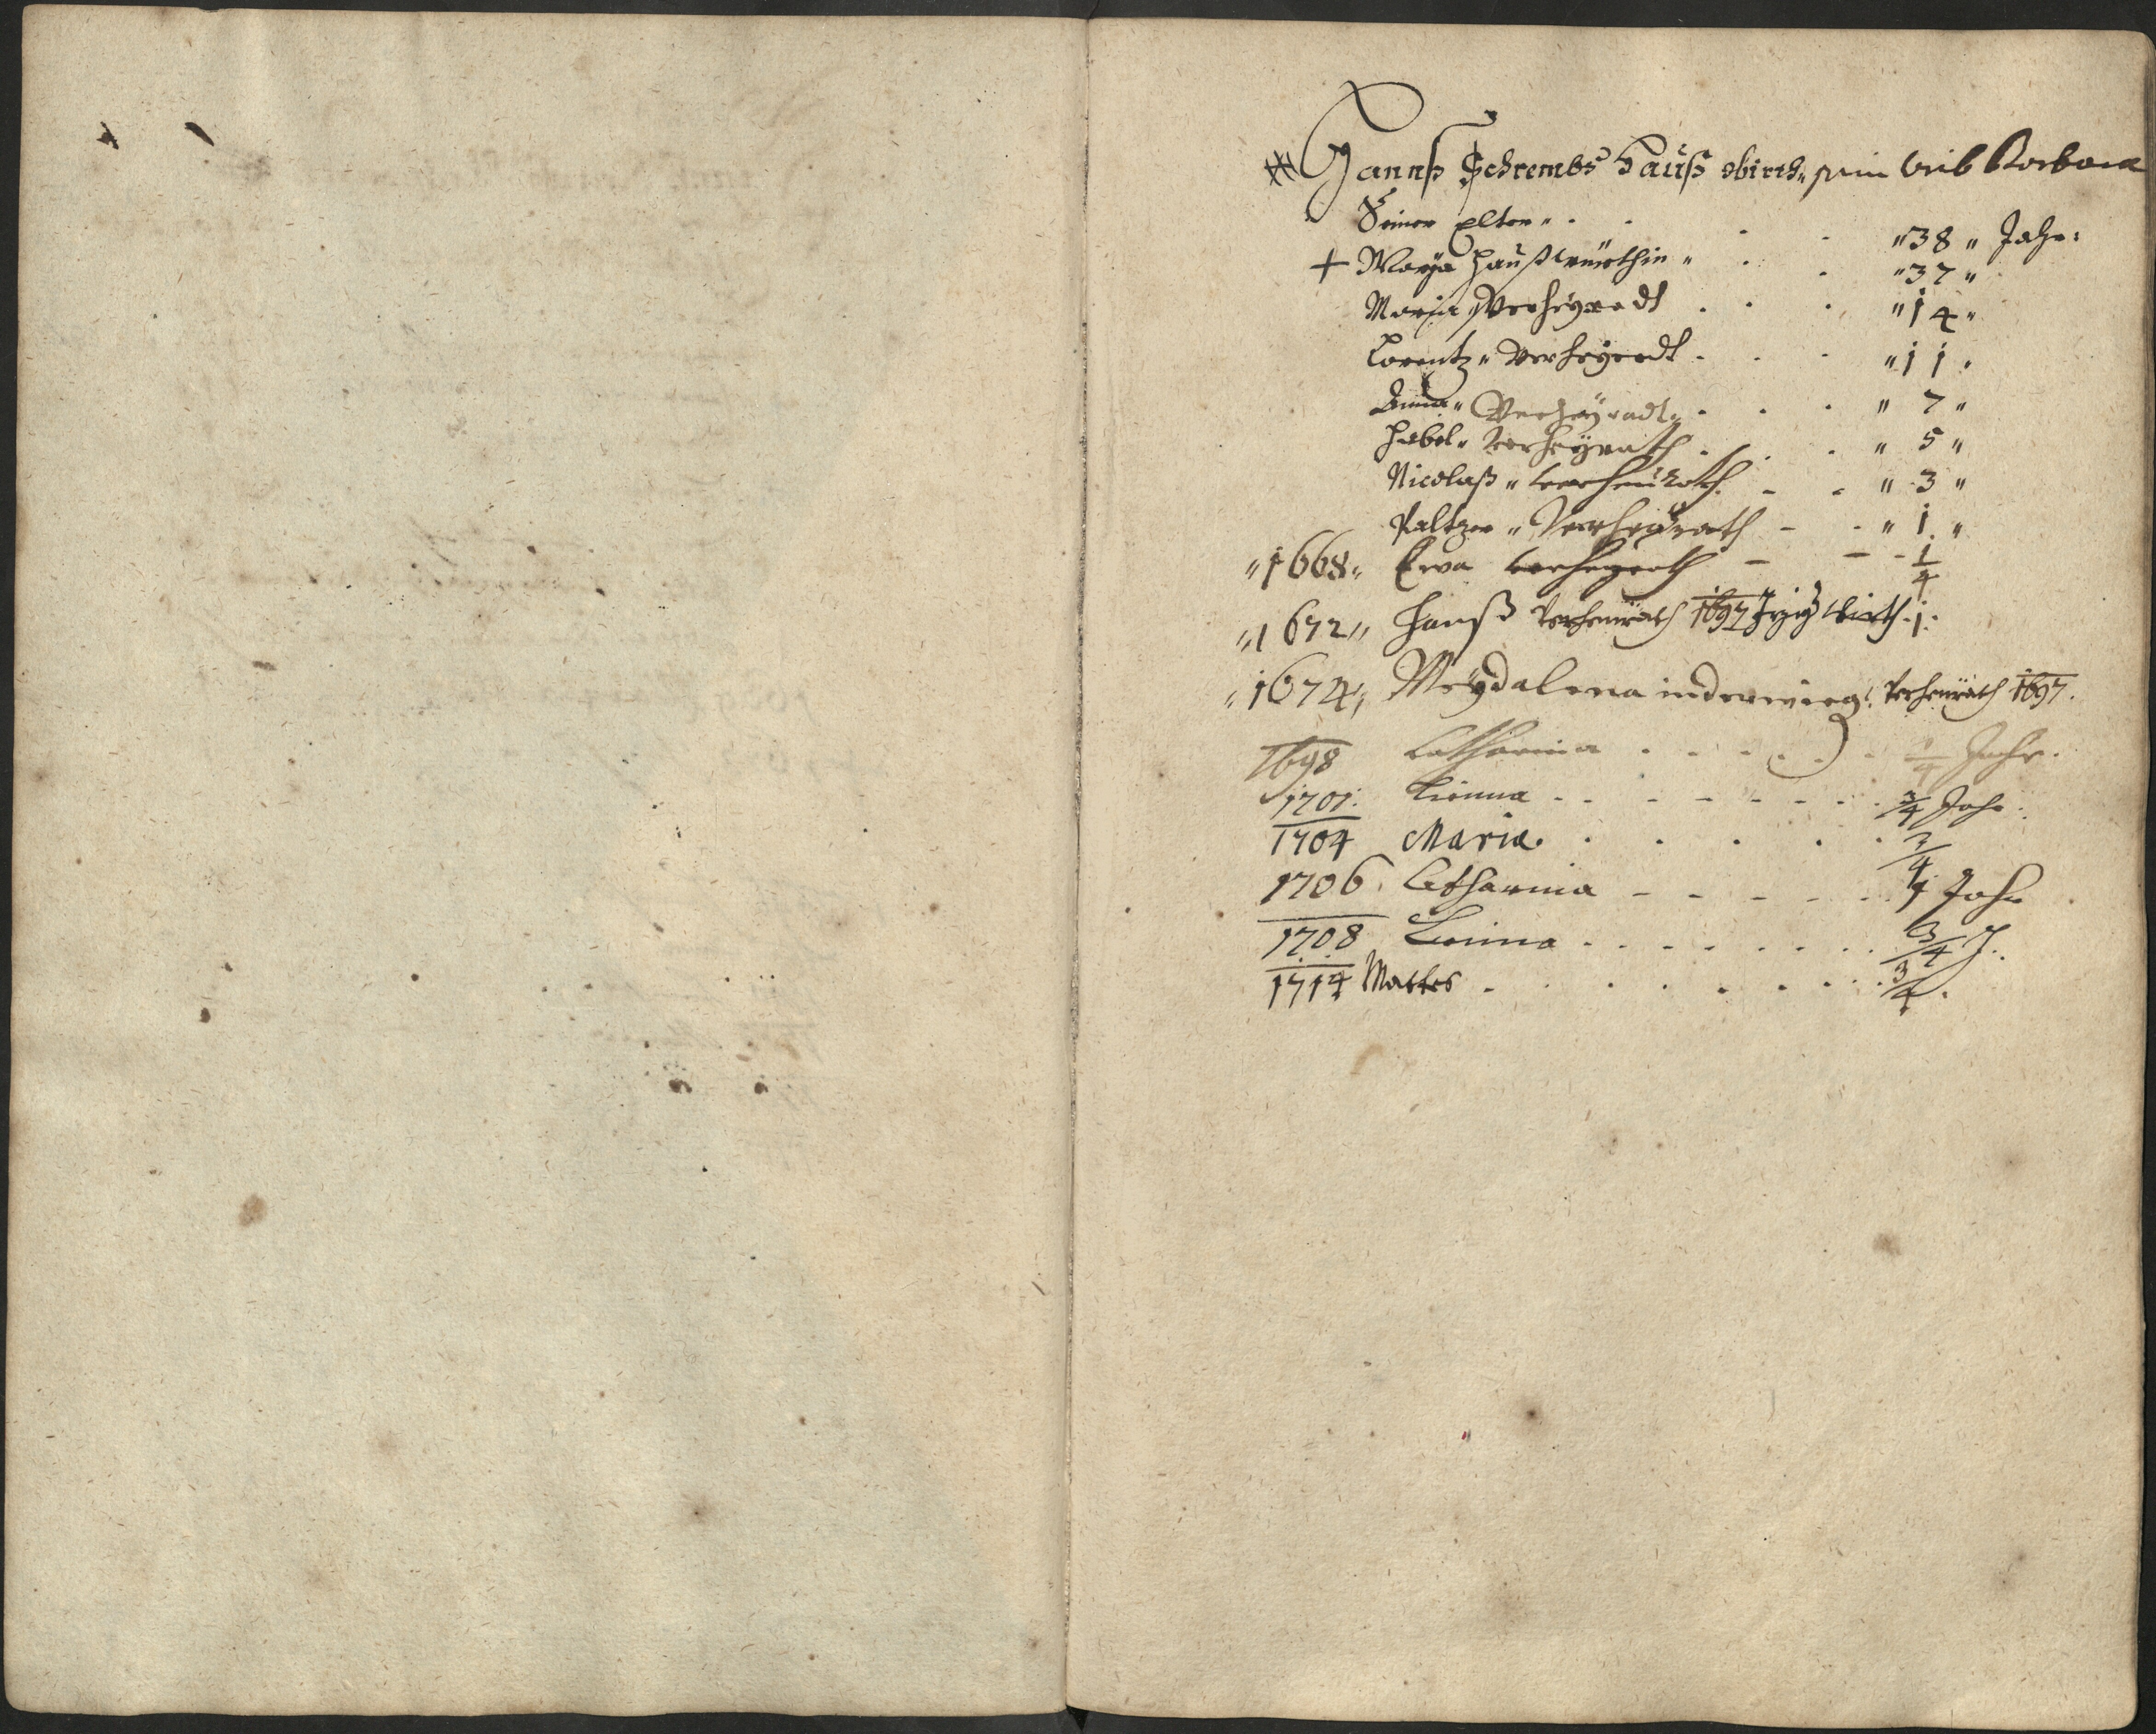 Hannß Schrembs Haußwirth„ sein Weib Barbara
Seiner Elter„ „38„ Jahr:
+ Marÿa Haußwürthin„ „37„
Maria Verheÿradt „14„
Lorentz„ Verheÿradt „11„
Anna„ Verheÿradt„ „7„
Habel„ Verheÿrath „5„
Nicolaß„ verheürath „3„
Paltzer„ Verheÿrath „1„
„1668„ Eva verheyrath 1/4
„1672„ Hanß Verheurath 1697 Jeziger Wirth 1.
„1674„ Meÿdalena in der wieg. Verheurath 1697.
1698 Catharina 1/4 Jahr.
1701. Anna 3/4 Jahr.
1704 Maria. 3/4
1706. Catharina 1/4 Jahr
1708 Anna 3/4 J.
1714 Mattes 3/4.